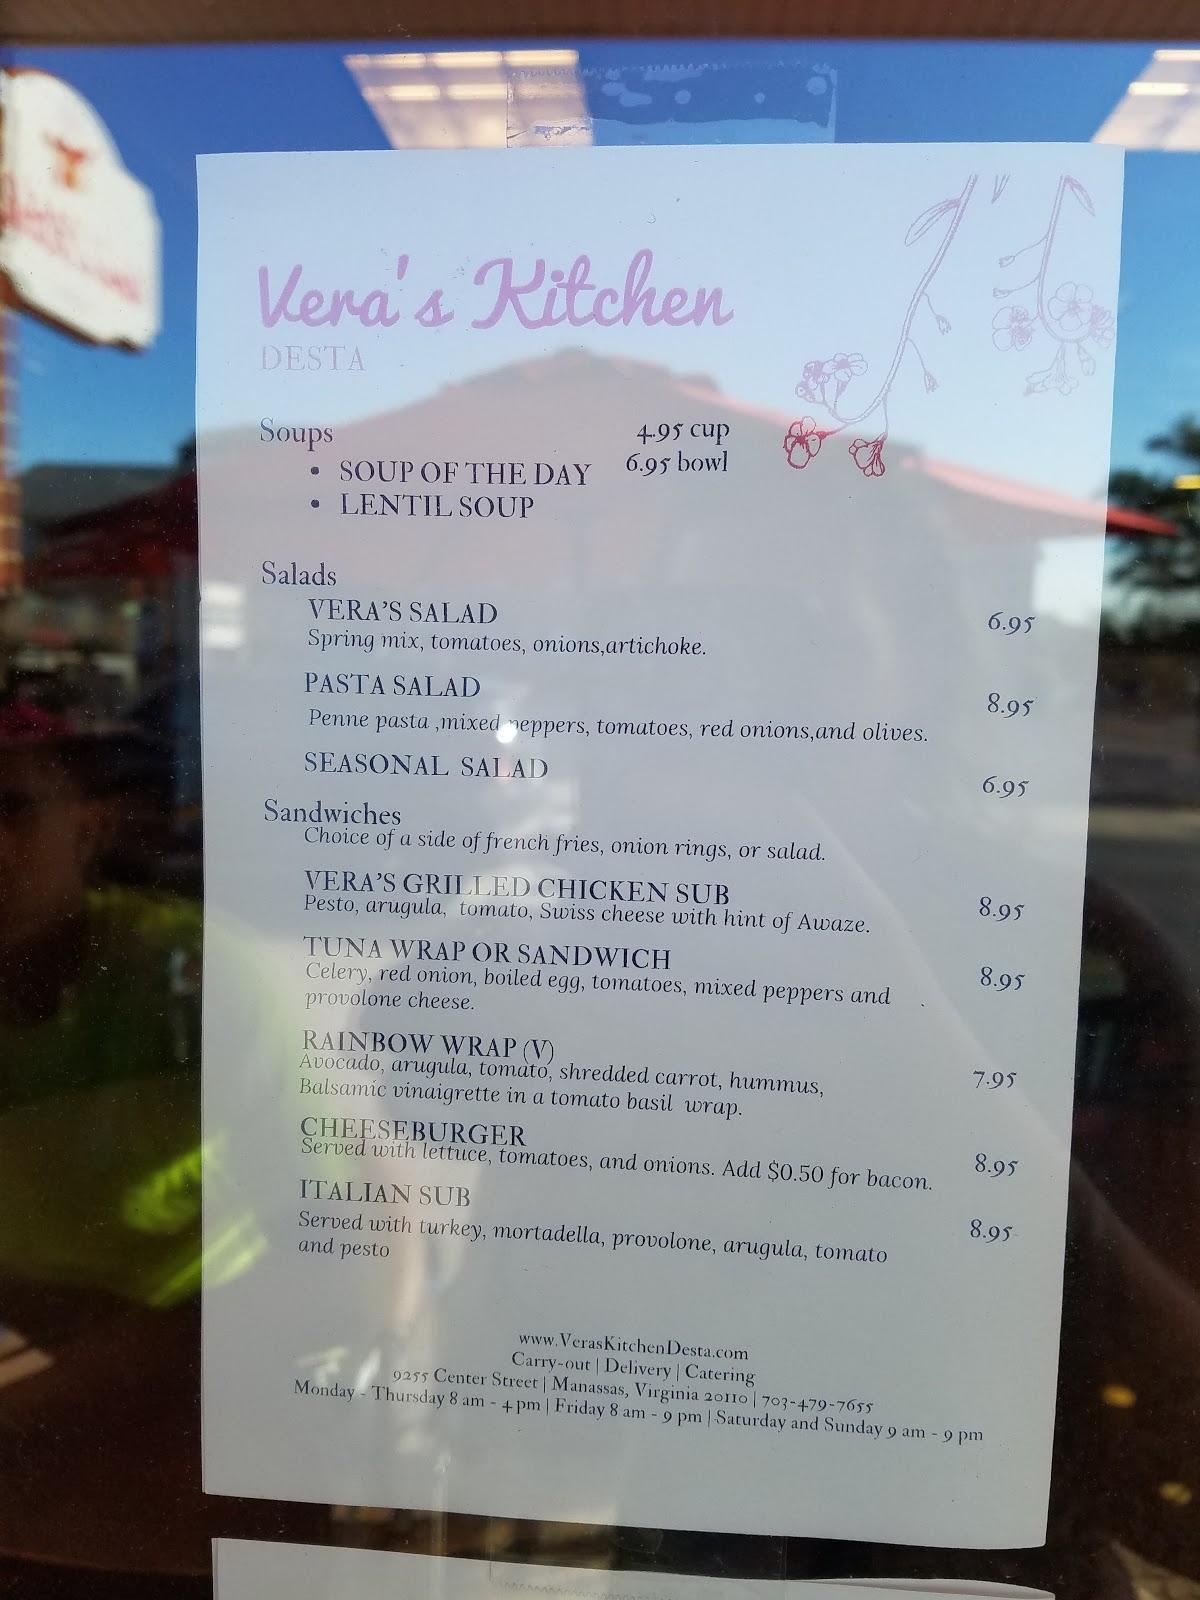 Vera's Kitchen
DESTA
Soups 4.95 cup
• SOUP OF THE DAY 6.95 bowl
• LENTIL SOUP
Salads
VERA'S SALAD 6.95
Spring mix, tomatoes, onions,artichoke.
PASTA SALAD 8.95
Penne pasta ,mixed peppers, tomatoes, red onions,and olives.
SEASONAL SALAD 6.95
Sandwiches
Choice of a side of french fries, onion rings, or salad.
VERA'S GRILLED CHICKEN SUB 8.95
Pesto, arugula, tomato, Swiss cheese with hint of Awaze.
TUNA WRAP OR SANDWICH 8.95
Celery, red onion, boiled egg, tomatoes, mixed peppers and
provolone cheese.
RAINBOW WRAP (V) 7.95
Avocado, arugula, tomato, shredded carrot, hummus,
Balsamic vinaigrette in a tomato basil wrap.
CHEESEBURGER 8.95
Served with lettuce, tomatoes, and onions. Add $0.50 for bacon.
ITALIAN SUB 8.95
Served with turkey, mortadella, provolone, arugula, tomato
and pesto
www.VerasKitchenDesta.com
Carry-out | Delivery | Catering
9255 Center Street | Manassas, Virginia 20110 | 703-479-7655
Monday - Thursday 8 am - 4 pm | Friday 8 am - 9 pm | Saturday and Sunday 9 am - 9 pm